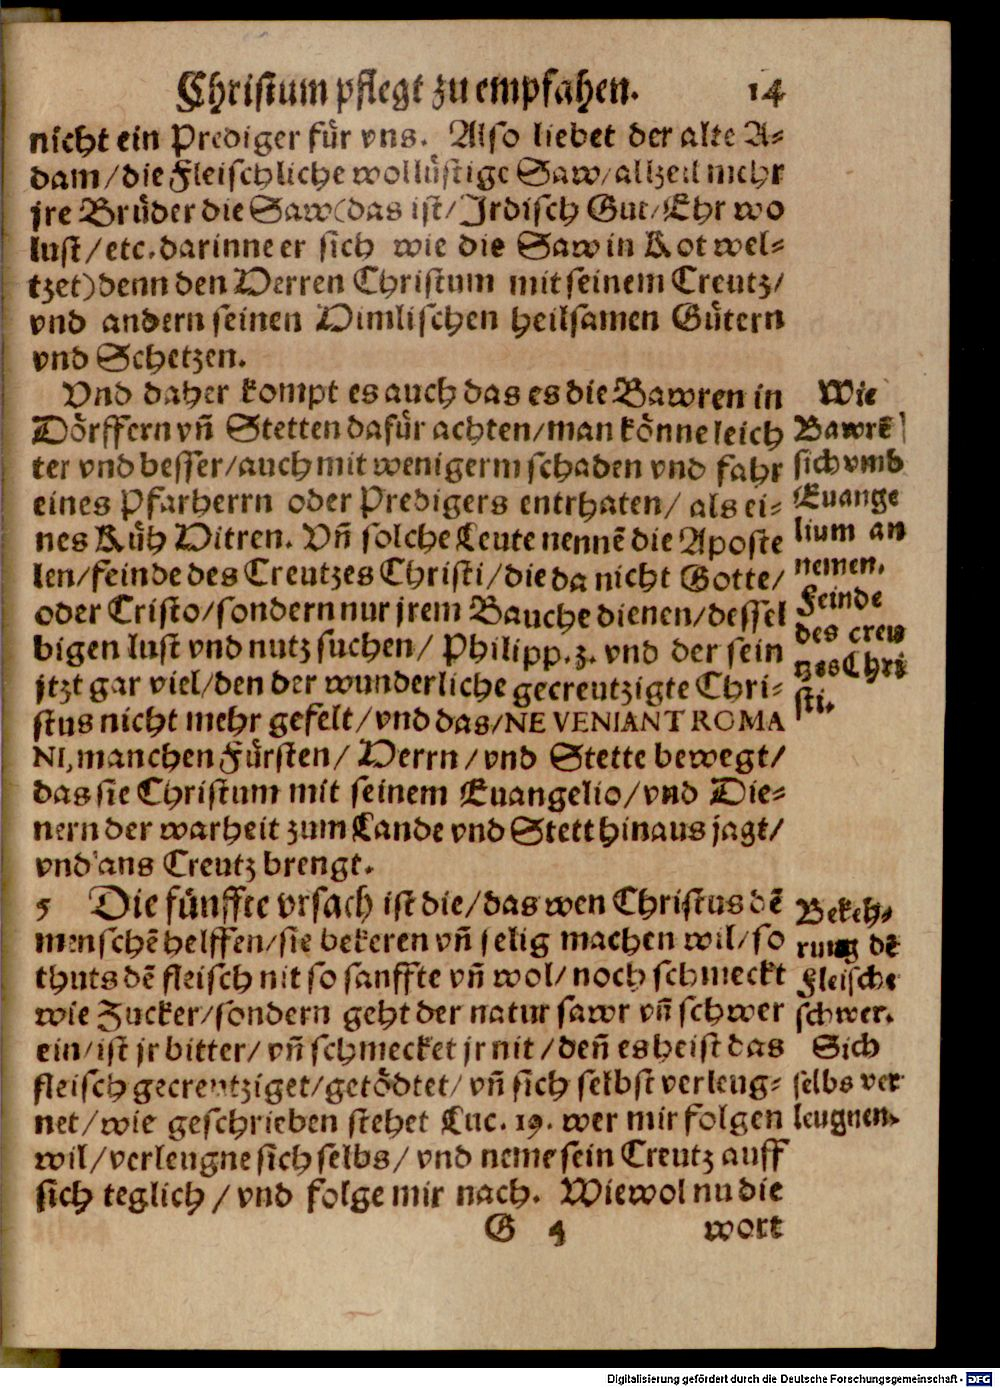 Christum pflegt zu empfahen. 14
nicht ein Prediger für vns. Also liebet der alte A-
dam/die Fleischliche wollüstige Saw/allzeil mehr
jre Brüder die Saw(das ist/Irdisch Gut/Ehr wo
lust/etc.darinne er sich wie die Saw in Kot wel-
tzet)denn den Herren Christum mit seinem Creutz/
vnd andern seinen Himlischen heilsamen Gütern
vnd Schetzen.
Vnd daher kompt es auch das es die Bawren in
Dörffern vñ Stetten dafür achten/man könne leich
ter vnd besser/auch mit wenigerm schaden vnd fahr
eines Pfarherrn oder Predigers entrhaten/ als ei-
nes Küh Hitren. Vñ solche Leute nennē die Aposte
len/feinde des Creutzes Christi/die da nicht Gotte/
oder Cristo/sondern nur jrem Bauche dienen/dessel
bigen lust vnd nutz suchen/ Philipp.3. vnd der sein
jtzt gar viel/den der wunderliche gecreutzigte Chri-
stus nicht mehr gefelt/vnd das/NE VENIANT ROMA
NI,manchen Fürsten/ Herrn/vnd Stette bewegt/
das sie Christum mit seinem Euangelio/vnd Die-
nern der warheit zum Lande vnd Stett hinaus jagt/
vnd ans Creutz brengt.
Wie
Bawrē
sich vmb
Euange
lium an
nemen.
Feinde
des creu
tzes Chri
sti.
5 Die fünffte vrsach ist die/das wen Christus dē
menschē helffen/sie bekeren vñ selig machen wil/so
thuts dē fleisch nit so sanffte vñ wol/noch schmeckt
wie Zucker/sondern geht der natur sawr vñ schwer
ein/ist jr bitter/vñ schmecket jr nit/deñ es heist das
fleisch gecreutziget/getödtet/vñ sich selbst verleug-
net/wie geschrieben stehet Luc. 19. wer mir folgen
wil/verleugne sich selbs/ vnd neme sein Creutz auff
sich teglich/vnd folge mir nach. Wiewol nu die
Bekeh-
rung dē
Fleische
schwer.
Sich
selbs ver
leugnen.
G 4 wort
Digitalisierung gefördert durch die Deutsche Forschungsgemeinschaft - DFG